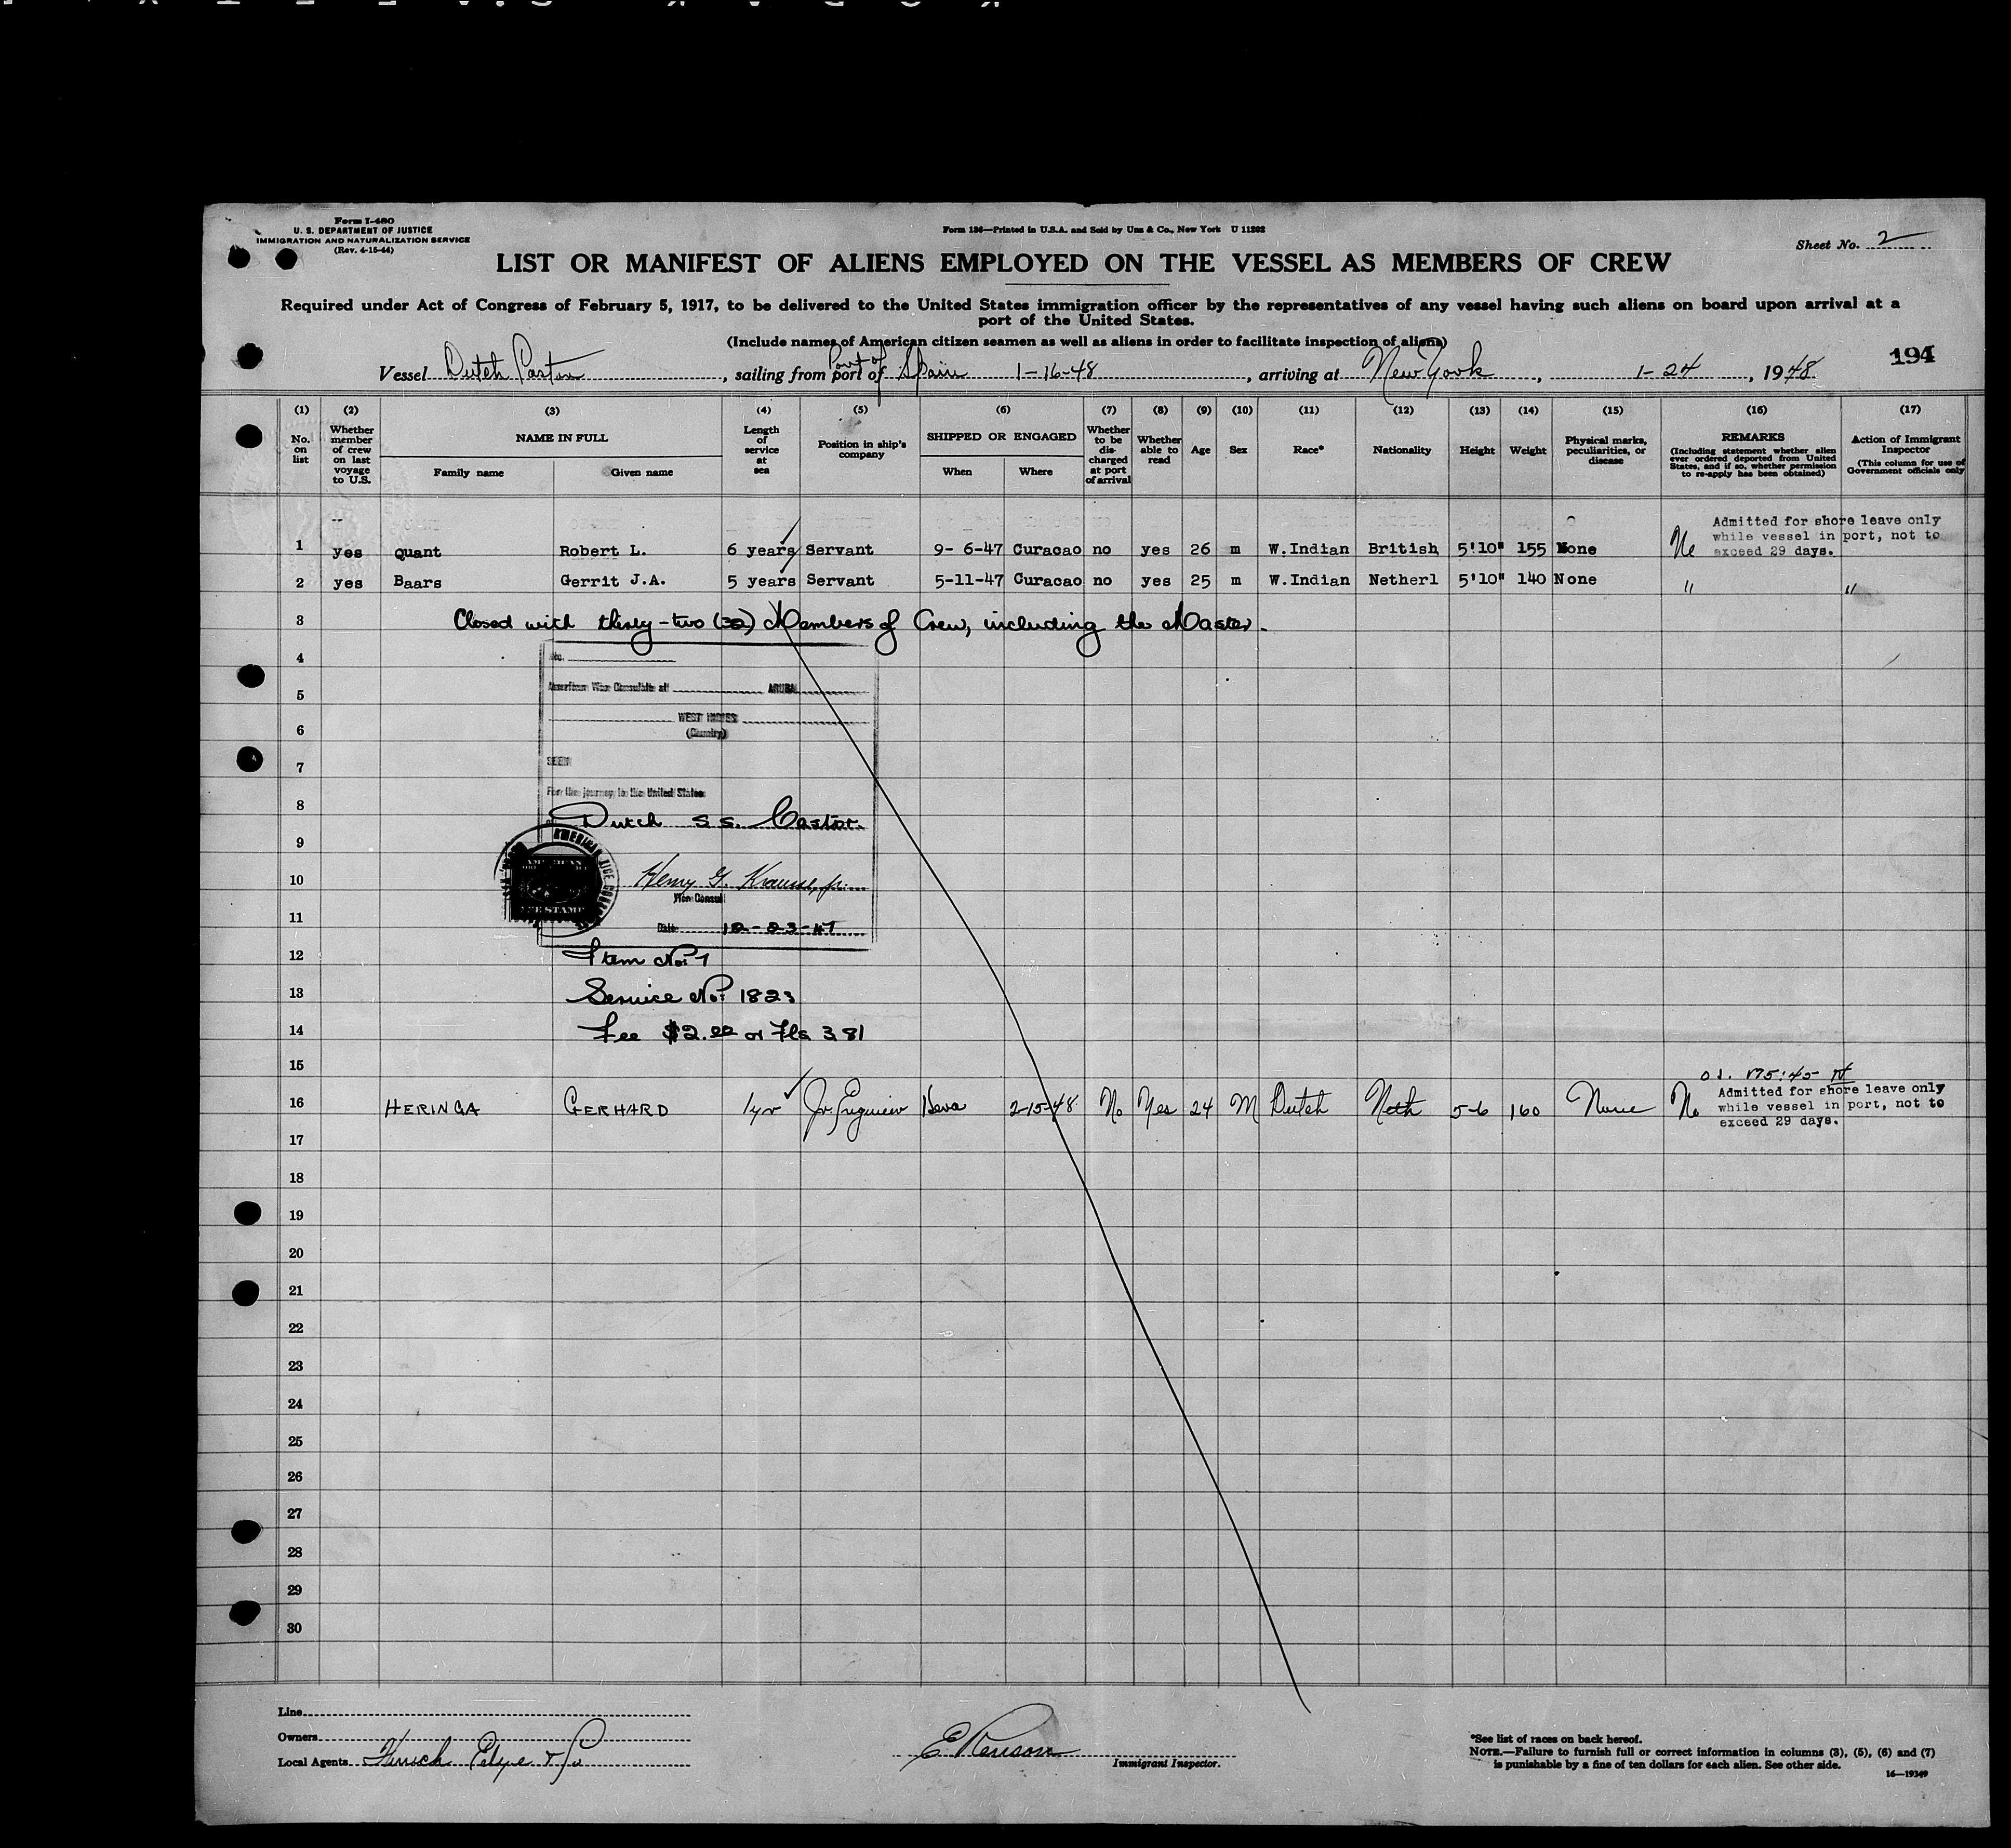 Form I-480
U. S. DEPARTMENT OF JUSTICE
IMMIGRATION AND NATURALIZATION SERVICE
(Rev. 4-15-44)
Form 186—Printed in U.S.A. and Sold by Unz & Co., New York U 11202
Sheet No. 2
LIST OR MANIFEST OF ALIENS EMPLOYED ON THE VESSEL AS MEMBERS OF CREW
Required under Act of Congress of February 5, 1917, to be delivered to the United States immigration officer by the representatives of any vessel having such aliens on board upon arrival at a
port of the United States.
(Include names of American citizen seamen as well as aliens in order to facilitate inspection of aliens)
194
Vessel Dutch Castor, sailing from port of Port of Spain 1-16-48, arriving at New York, 1-24, 1948
(1) (2) (3) (4) (5) (6) (7) (8) (9) (10) (11) (12) (13) (14) (15) (16) (17)
No. on list
Whether member of crew on last voyage to U.S.
NAME IN FULL
Family name Given name
Length of service at sea
Position in ship's company
SHIPPED OR ENGAGED
When Where
Whether to be discharged at port of arrival
Whether able to read
Age Sex Race* Nationality Height Weight
Physical marks, peculiarities, or disease
REMARKS
(Including statement whether alien ever ordered deported from United States, and if so, whether permission to re-apply has been obtained)
Action of Immigrant Inspector
(This column for use of Government officials only
1 yes quant Robert L. 6 years Servant 9- 6-47 Curacao no yes 26 m W.Indian British 5'10" 155 None No Admitted for shore leave only
while vessel in port, not to
exceed 29 days.
2 yes Baars Gerrit J.A. 5 years Servant 5-11-47 Curacao no yes 25 m W.Indian Netherl 5'10" 140 None " "
3 Closed with thirty-two (32) Members of Crew, including the Master.
4 No.
5 American Vice Consulate at ARUBA
6 WEST INDIES
(Country)
7 SEEN
For the journey to the United States
8 Dutch S S. Castor.
9
10 Henry G. Krausse, jr.
Vice Consul
11 Date 12-23-47
12 Item No. 7
13 Service No: 1823
14 Fee $2.00 or Fls 3.81
15
16 HERINGA GERHARD 1 yr Jr. Engineer 2-15-48 No Yes 24 M Dutch Neth 5-6 160 None No Admitted for shore leave only
while vessel in port, not to
exceed 29 days.
17
18
19
20
21
22
23
24
25
26
27
28
29
30
Line
Owners
Local Agents
Immigrant Inspector.
*See list of races on back hereof.
NOTE.—Failure to furnish full or correct information in columns (3), (5), (6) and (7)
is punishable by a fine of ten dollars for each alien. See other side.
16—19349